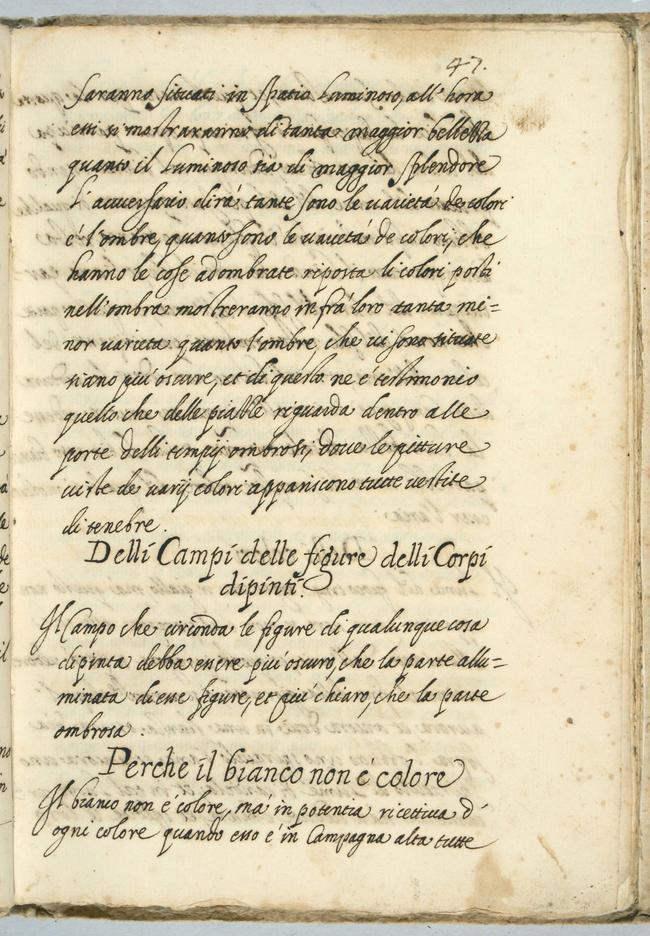 47.
saranno situati in spatio luminoso, all'hora
essi si mostraranno di tanta maggior bellezza
quanto il luminoso sia di maggior splendore
L'avversario dirá tante sono le varietá de colori
é l'ombre, quanto sono le varietá de colori, che
hanno le cose adombrate riposta li colori posti
nell'ombra mostreranno infrá loro tanta mi=
nor varieta quanto l'ombre, che vi sono situate
siano piú oscure, et di questo ne é testimonio
quello che delle piazze riguarda dentro alle
porte delli tempij ombrosi, dove le pitture
viste de varij colori appariscono tutte vestite
di tenebre.
Delli Campi delle figure delli Corpi
dipinti.
Il Campo che circonda le figure di qualunque cosa
dipinta debba essere piú oscuro, che la parte allu=
minata di esse figure, et piú chiaro, che la parte
ombrosa.
Perche il bianco non é colore
Il bianco non é colore, má in potentia ricettiva d'
ogni colore quando esso é in Campagna alta tutte